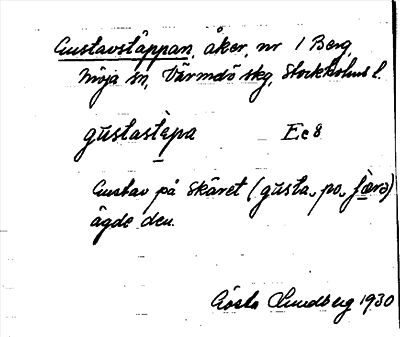 Gustavstäppan, åker, nr 1 Berg,
Möja sn, Värmdö skg, Stockholms l.
gustastèpa Ec8
Gustav på Skäret (gusta, po,
ägde den.
Gösta Lundberg 1930